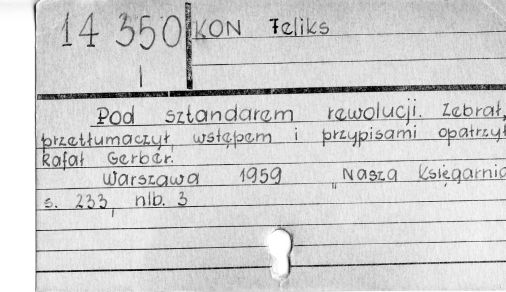 14 350 KON Feliks
I
Pod sztandarem rewolucji. Zebrał,
przetłumaczył, wstępem i przypisami opatrzył
Rafał Gerber.
Warszawa 1959 "Nasza Księgarnia
s. 233, nlb. 3